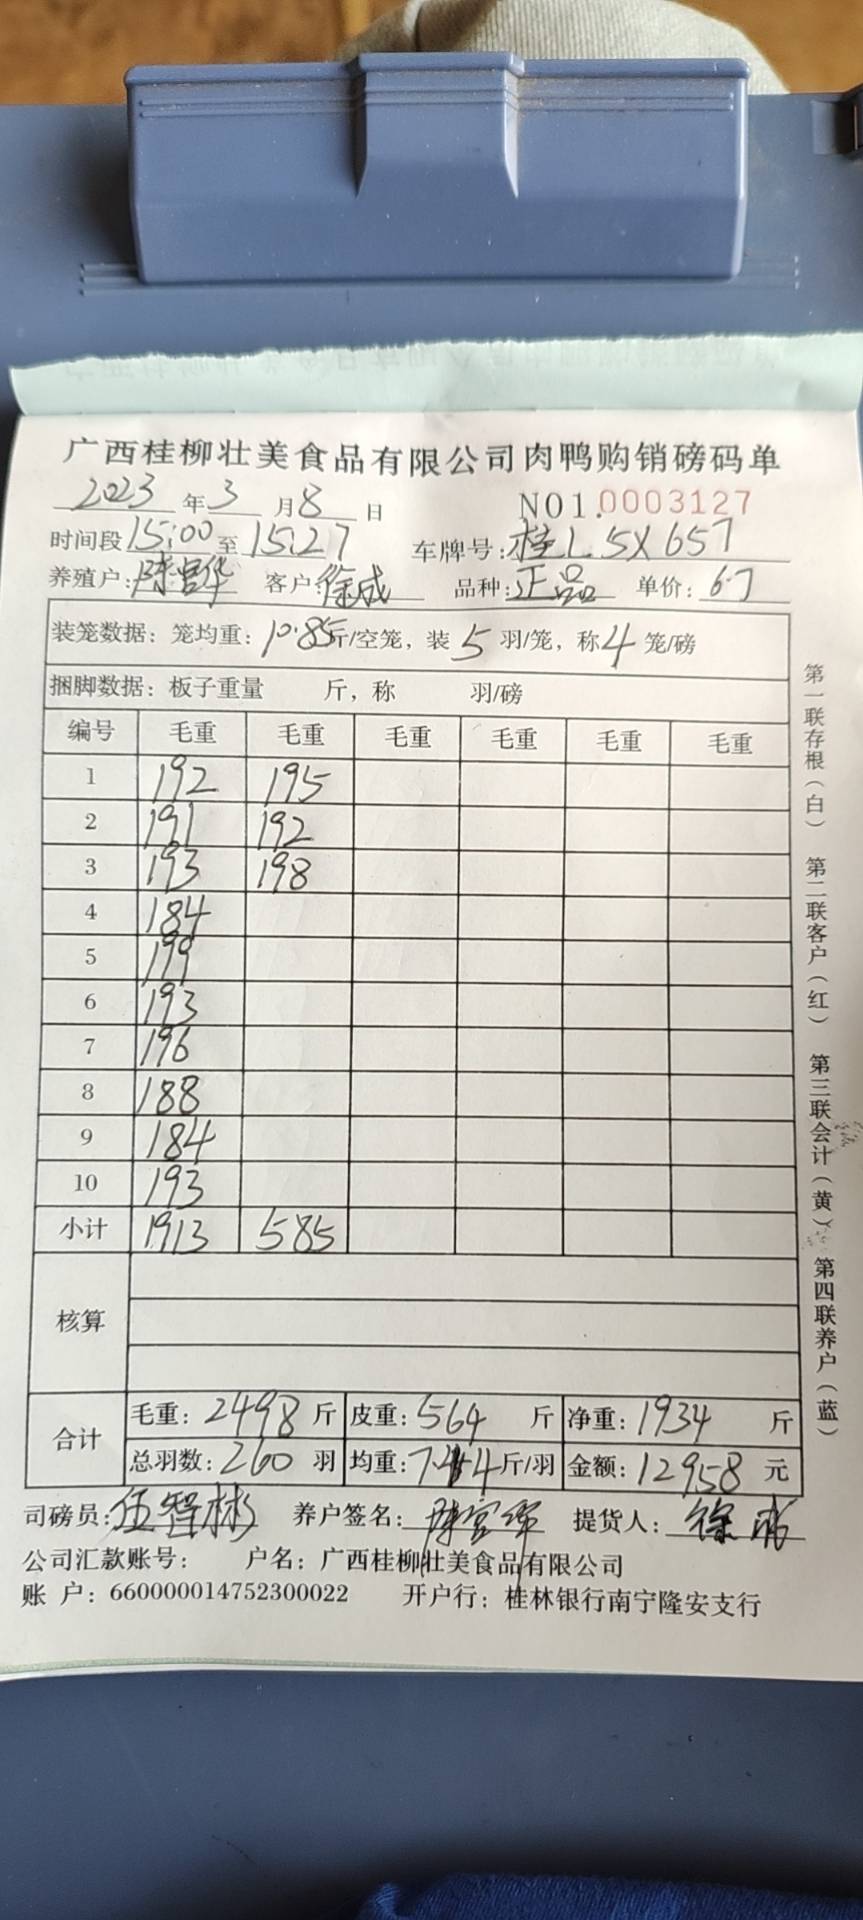 广西桂柳壮美食品有限公司肉鸭购销磅码单
2023年3月8日 NO1.0003127
时间段15:00至15:27 车牌号:桂L.5X657
养殖户:陈宫华 客户:徐成 品种:正品 单价:6.7
装笼数据:笼均重:10.85斤/空笼,装5羽/笼,称4笼/磅
捆脚数据:板子重量 斤,称 羽/磅
编号 毛重 毛重 毛重 毛重 毛重 毛重
1 192 195
2 191 192
3 193 198
4 184
5 199
6 193
7 196
8 188
9 184
10 193
小计 1913 585
核算
合计 毛重:2498斤 皮重:564斤 净重:1934斤
总羽数:260羽 均重:7.44斤/羽 金额:12958元
司磅员:伍智彬 养户签名:陈宫华 提货人:徐成
公司汇款账号: 户名:广西桂柳壮美食品有限公司
账 户:660000014752300022 开户行:桂林银行南宁隆安支行
第一联存根(白) 第二联客户(红) 第三联会计(黄) 第四联养户(蓝)